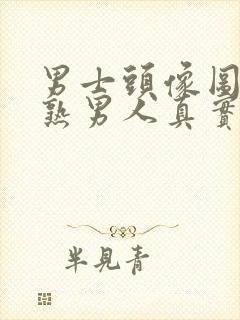 男士頭像圖
熟男人真實
半見青